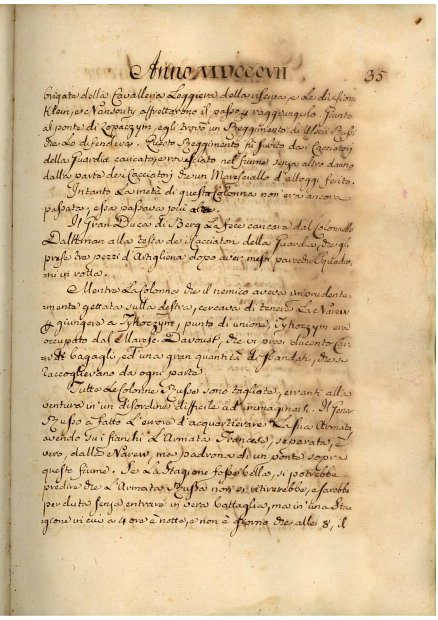 Anno MDCCCVII
35
brigata della Cavalleria Leggiera della riserva, e le divisioni
Klein, e Nansouty affrettarono il passo, e raggiungerlo. Giunta
al ponte di Lopaczym, egli trovò un Reggimento di Usseri Russi
che lo difendeva. Questo Reggimento fù subito dai Cacciatori
della Guardia caricato, e rovesciato nel fiume senza altro danno
dalla parte dei Cacciatori che un Maresciallo d'alloggi ferito.
Intanto la metà di questa Colonna non era ancora
passata, essa passava più alto.
Il Gran Duca di Berg la fece caricare dal Colonnello
Dalhman alla testa de' Cacciatori della Guardia, che gli
prese tre pezzi d'Artiglieria dopo aver messi parecchi squadro=
ni in rotta.
Mentre la Colonna che il nemico aveva imprudente
mente gettata sulla destra, cercava di tenere la Narew
p giungere a Tykoczym, punto di unione, Tykoczym era
occupato dal Maresc. Davoust, che vi prese ducento Car
ri di bagagli, ed una gran quantità di sbandati, che si
raccoglievano da ogni parte.
Tutte le Colonne Russe sono tagliate, erranti alla
ventura in un disordine difficile ad immaginarsi. Il Gener.
Russo à fatto l'errore d'acquartierare la sua Armata
avendo sui fianchi l'Armata Francese, separata, è
vero, dalla Narew, ma padrona di un ponte sopra
questo fiume. Se la stagione fosse bella, si potrebbe
predire che l'Armata Russa non si ritirerebbe, e sarebbe
perduta senza entrare in vera battaglia, ma in una Sta
gione in cui a 4 ore è notte, e non è giorno che alle 8, il